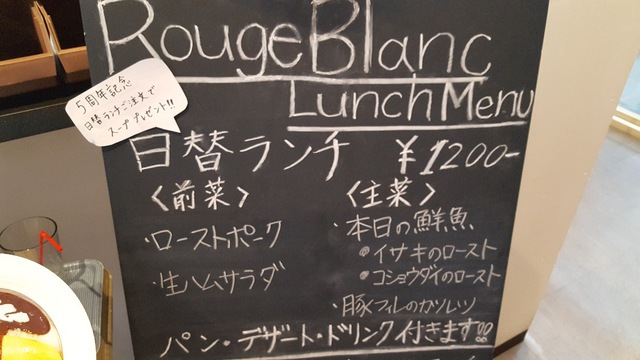 Rouge Blanc
Lunch Menu
5周年記念
日替ランチご注文で
スーププレゼント!!
日替ランチ ¥1200-
〈前菜〉
・ローストポーク
・生ハムサラダ
〈主菜〉
・本日の鮮魚
●イサキのロースト
●コショウダイのロースト
・豚フィレのカツレツ
パン・デザート・ドリンク付きます!!